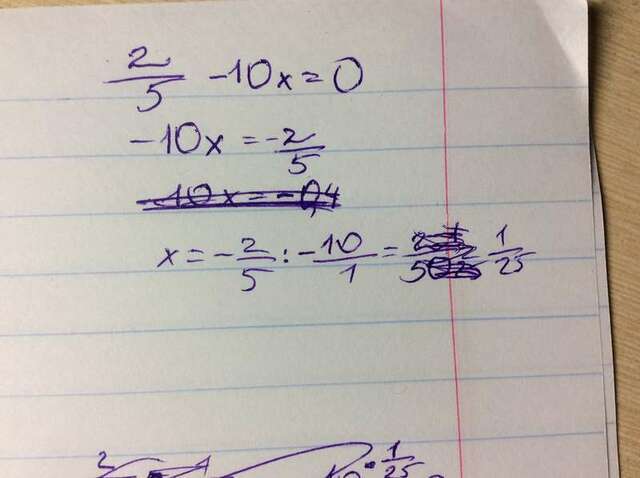 2/5 -10x=0
-10x=-2/5
-10x=-0,4
x=-2/5:-10/1= 1/25
1/25